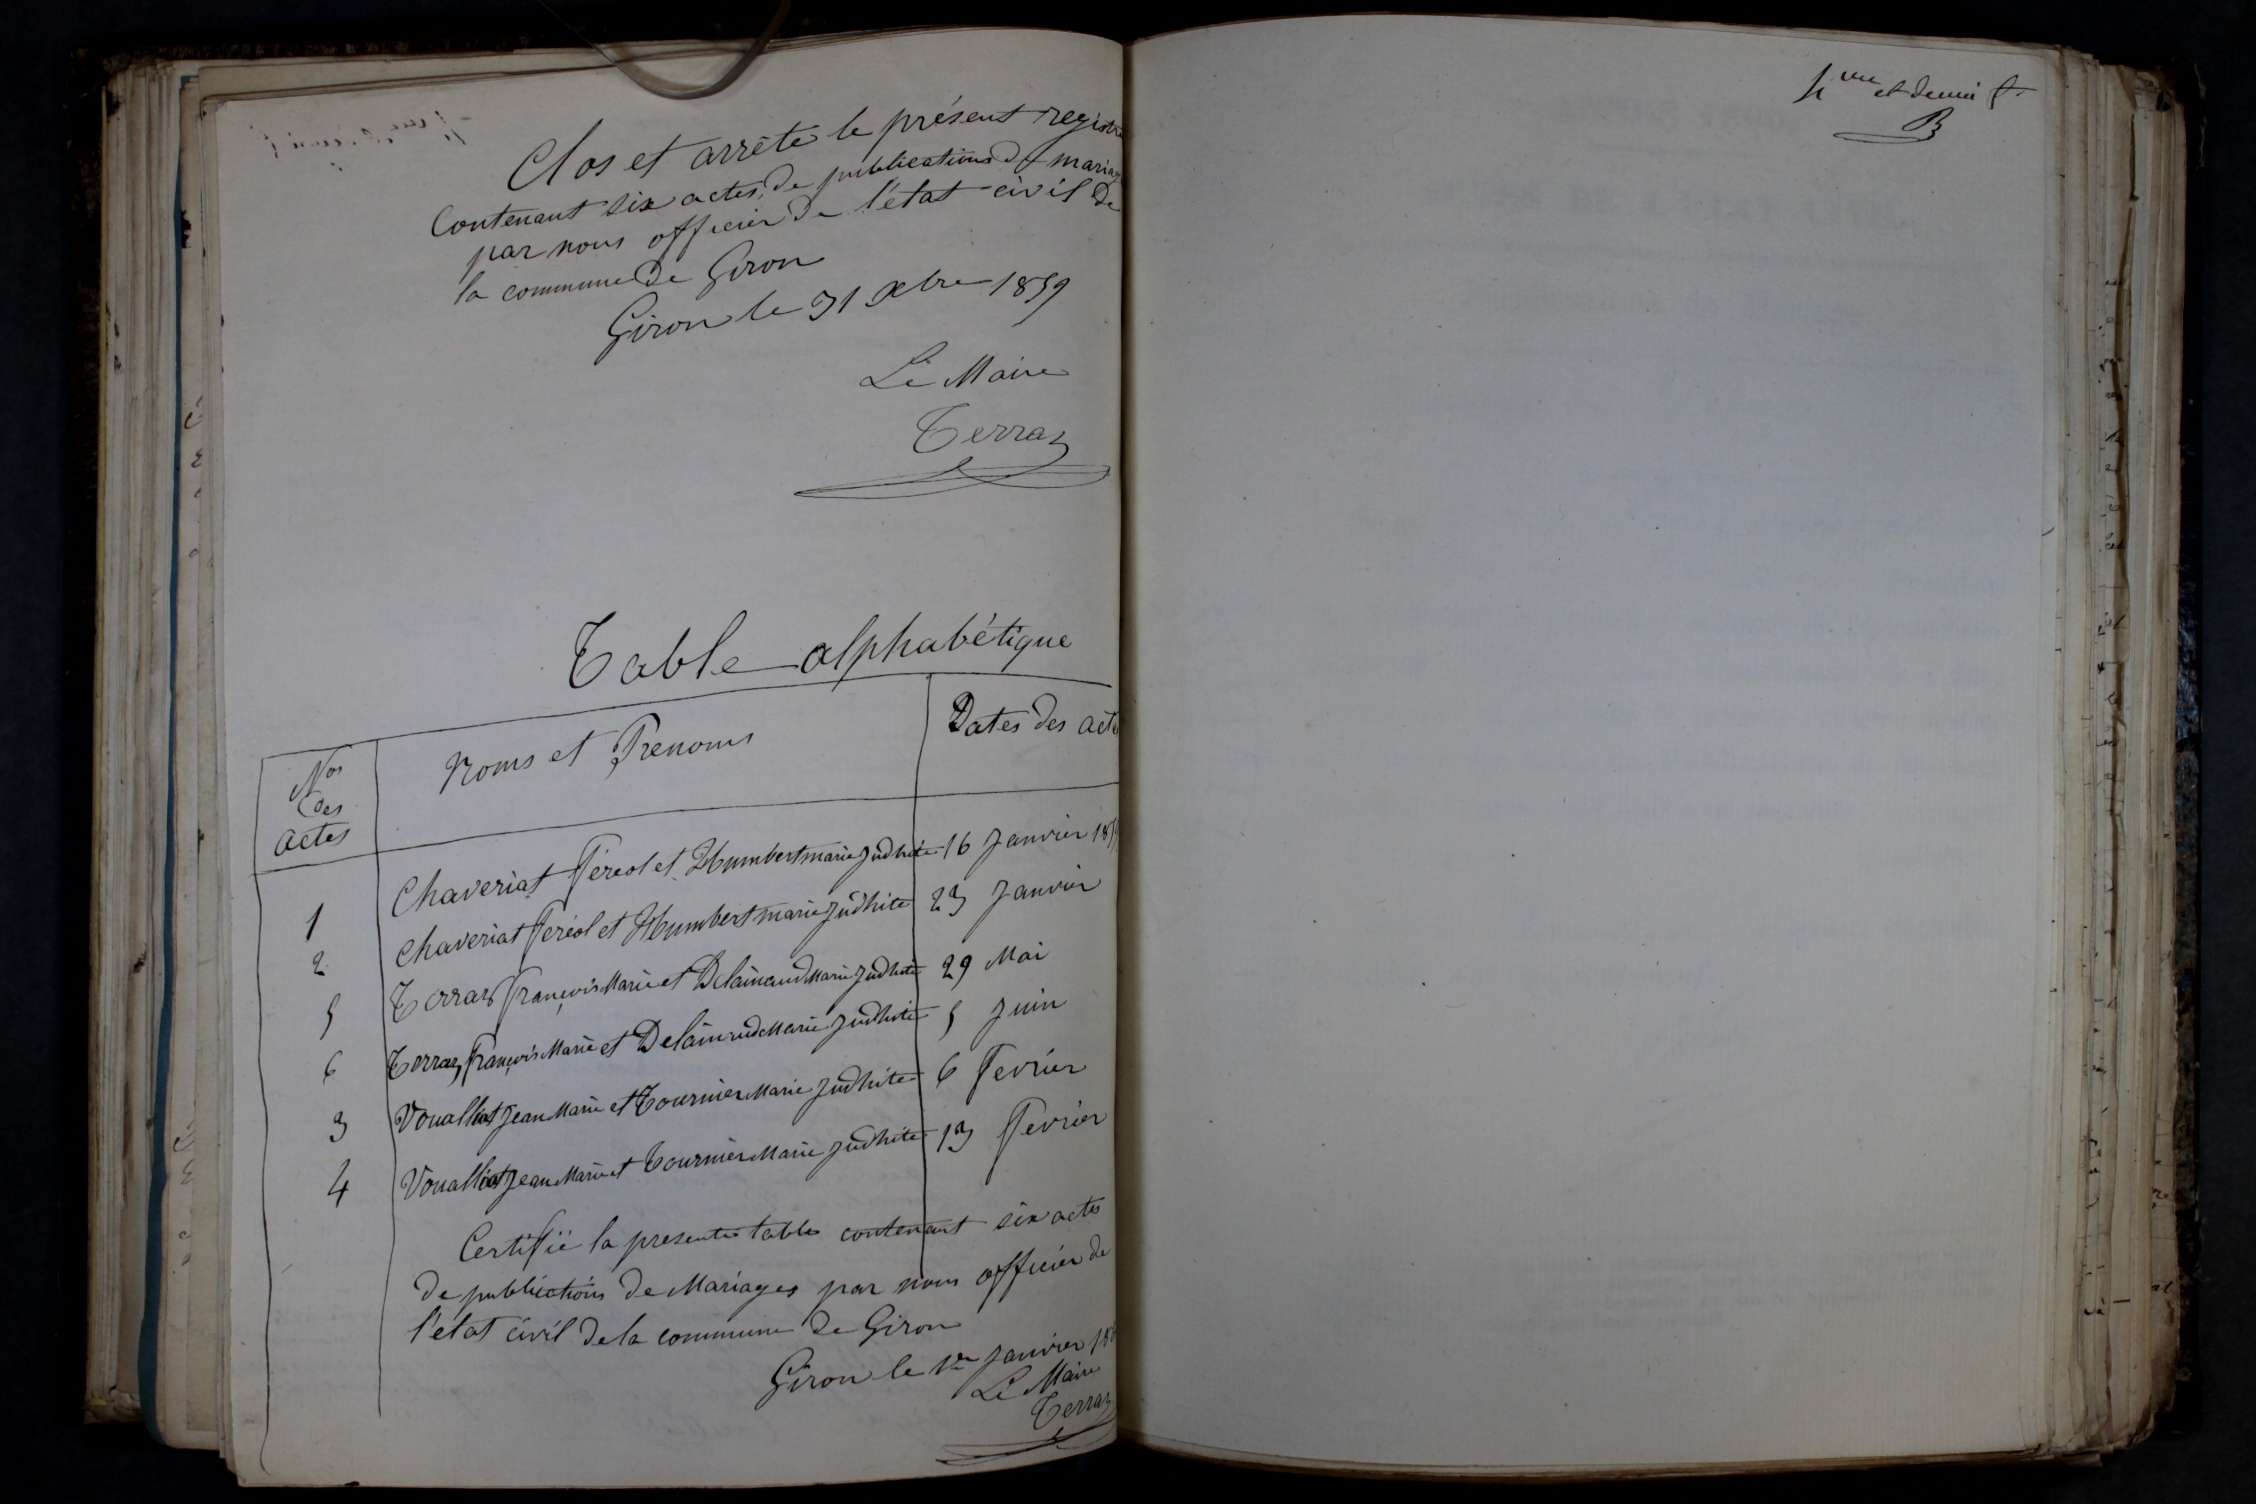 Clos et arrêté le présent registre
Contenant six actes, de publications de mariage
par nous officier de l'état civil de
la commune de Giron
Giron le 31 Xbre 1859
Le Maire
Terraz
Table alphabétique
Nos des actes
Noms et Prenoms
Dates des acte
1 Chaveriat Féréol et Humbert marie Judhite 16 Janvier 1859
2 Chaveriat Feréol et Humbert marie Judhite 23 Janvier
5 Terraz François Marie et Delainaud Marie Judhite 29 Mai
6 Terraz François Marie et Delainaud Marie Judhite 5 Juin
3 Vouallat Jean Marie et Tournier Marie Judhite 6 Fevrier
4 Vouallat Jean Marie et Tournier Marie Judhite 13 Fevrier
Certifié la presente table contenant six actes
de publications de Mariages par nous officier de
l'état civil de la commune de Giron
Giron le 1er Janvier 18
Le Maire
Terraz
et demi f.
B